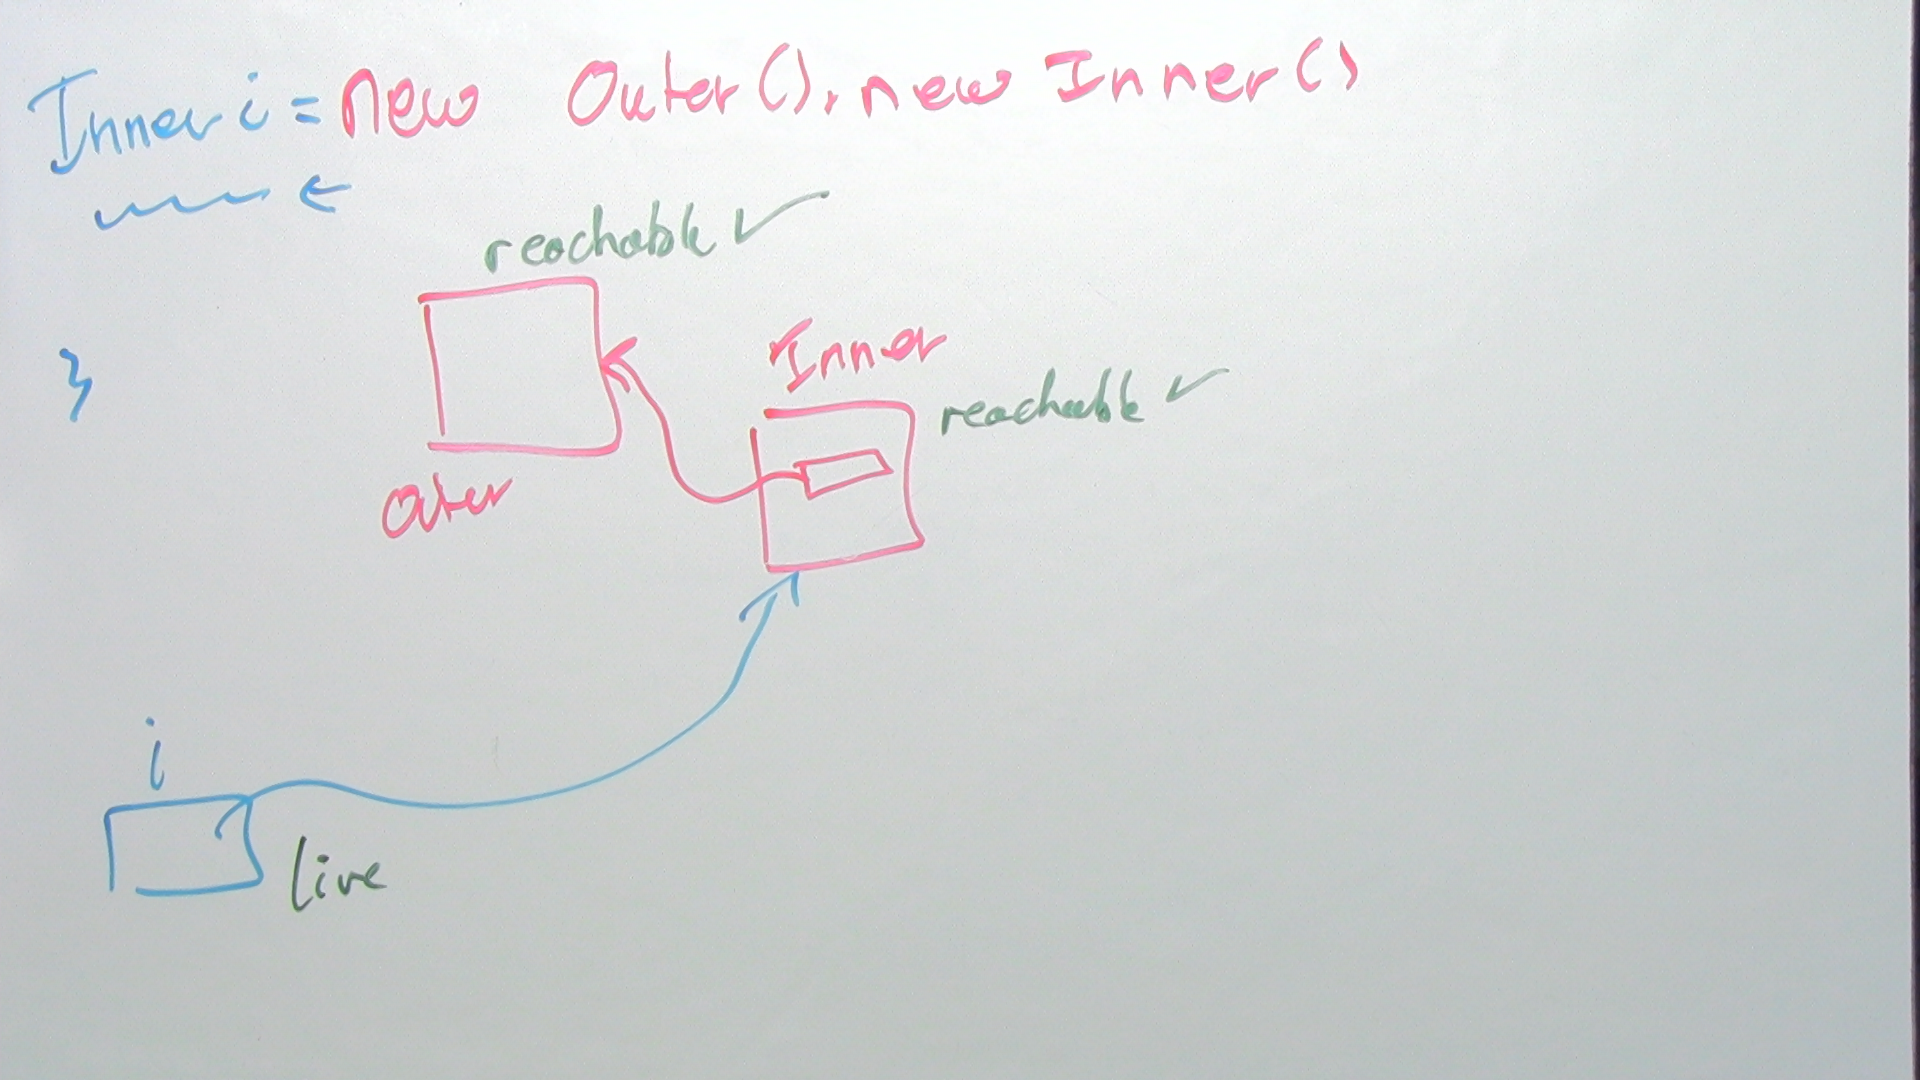 Inner i = new Outer().new Inner()
reachable ✓
Inner
reachable ✓
}
Outer
i
live